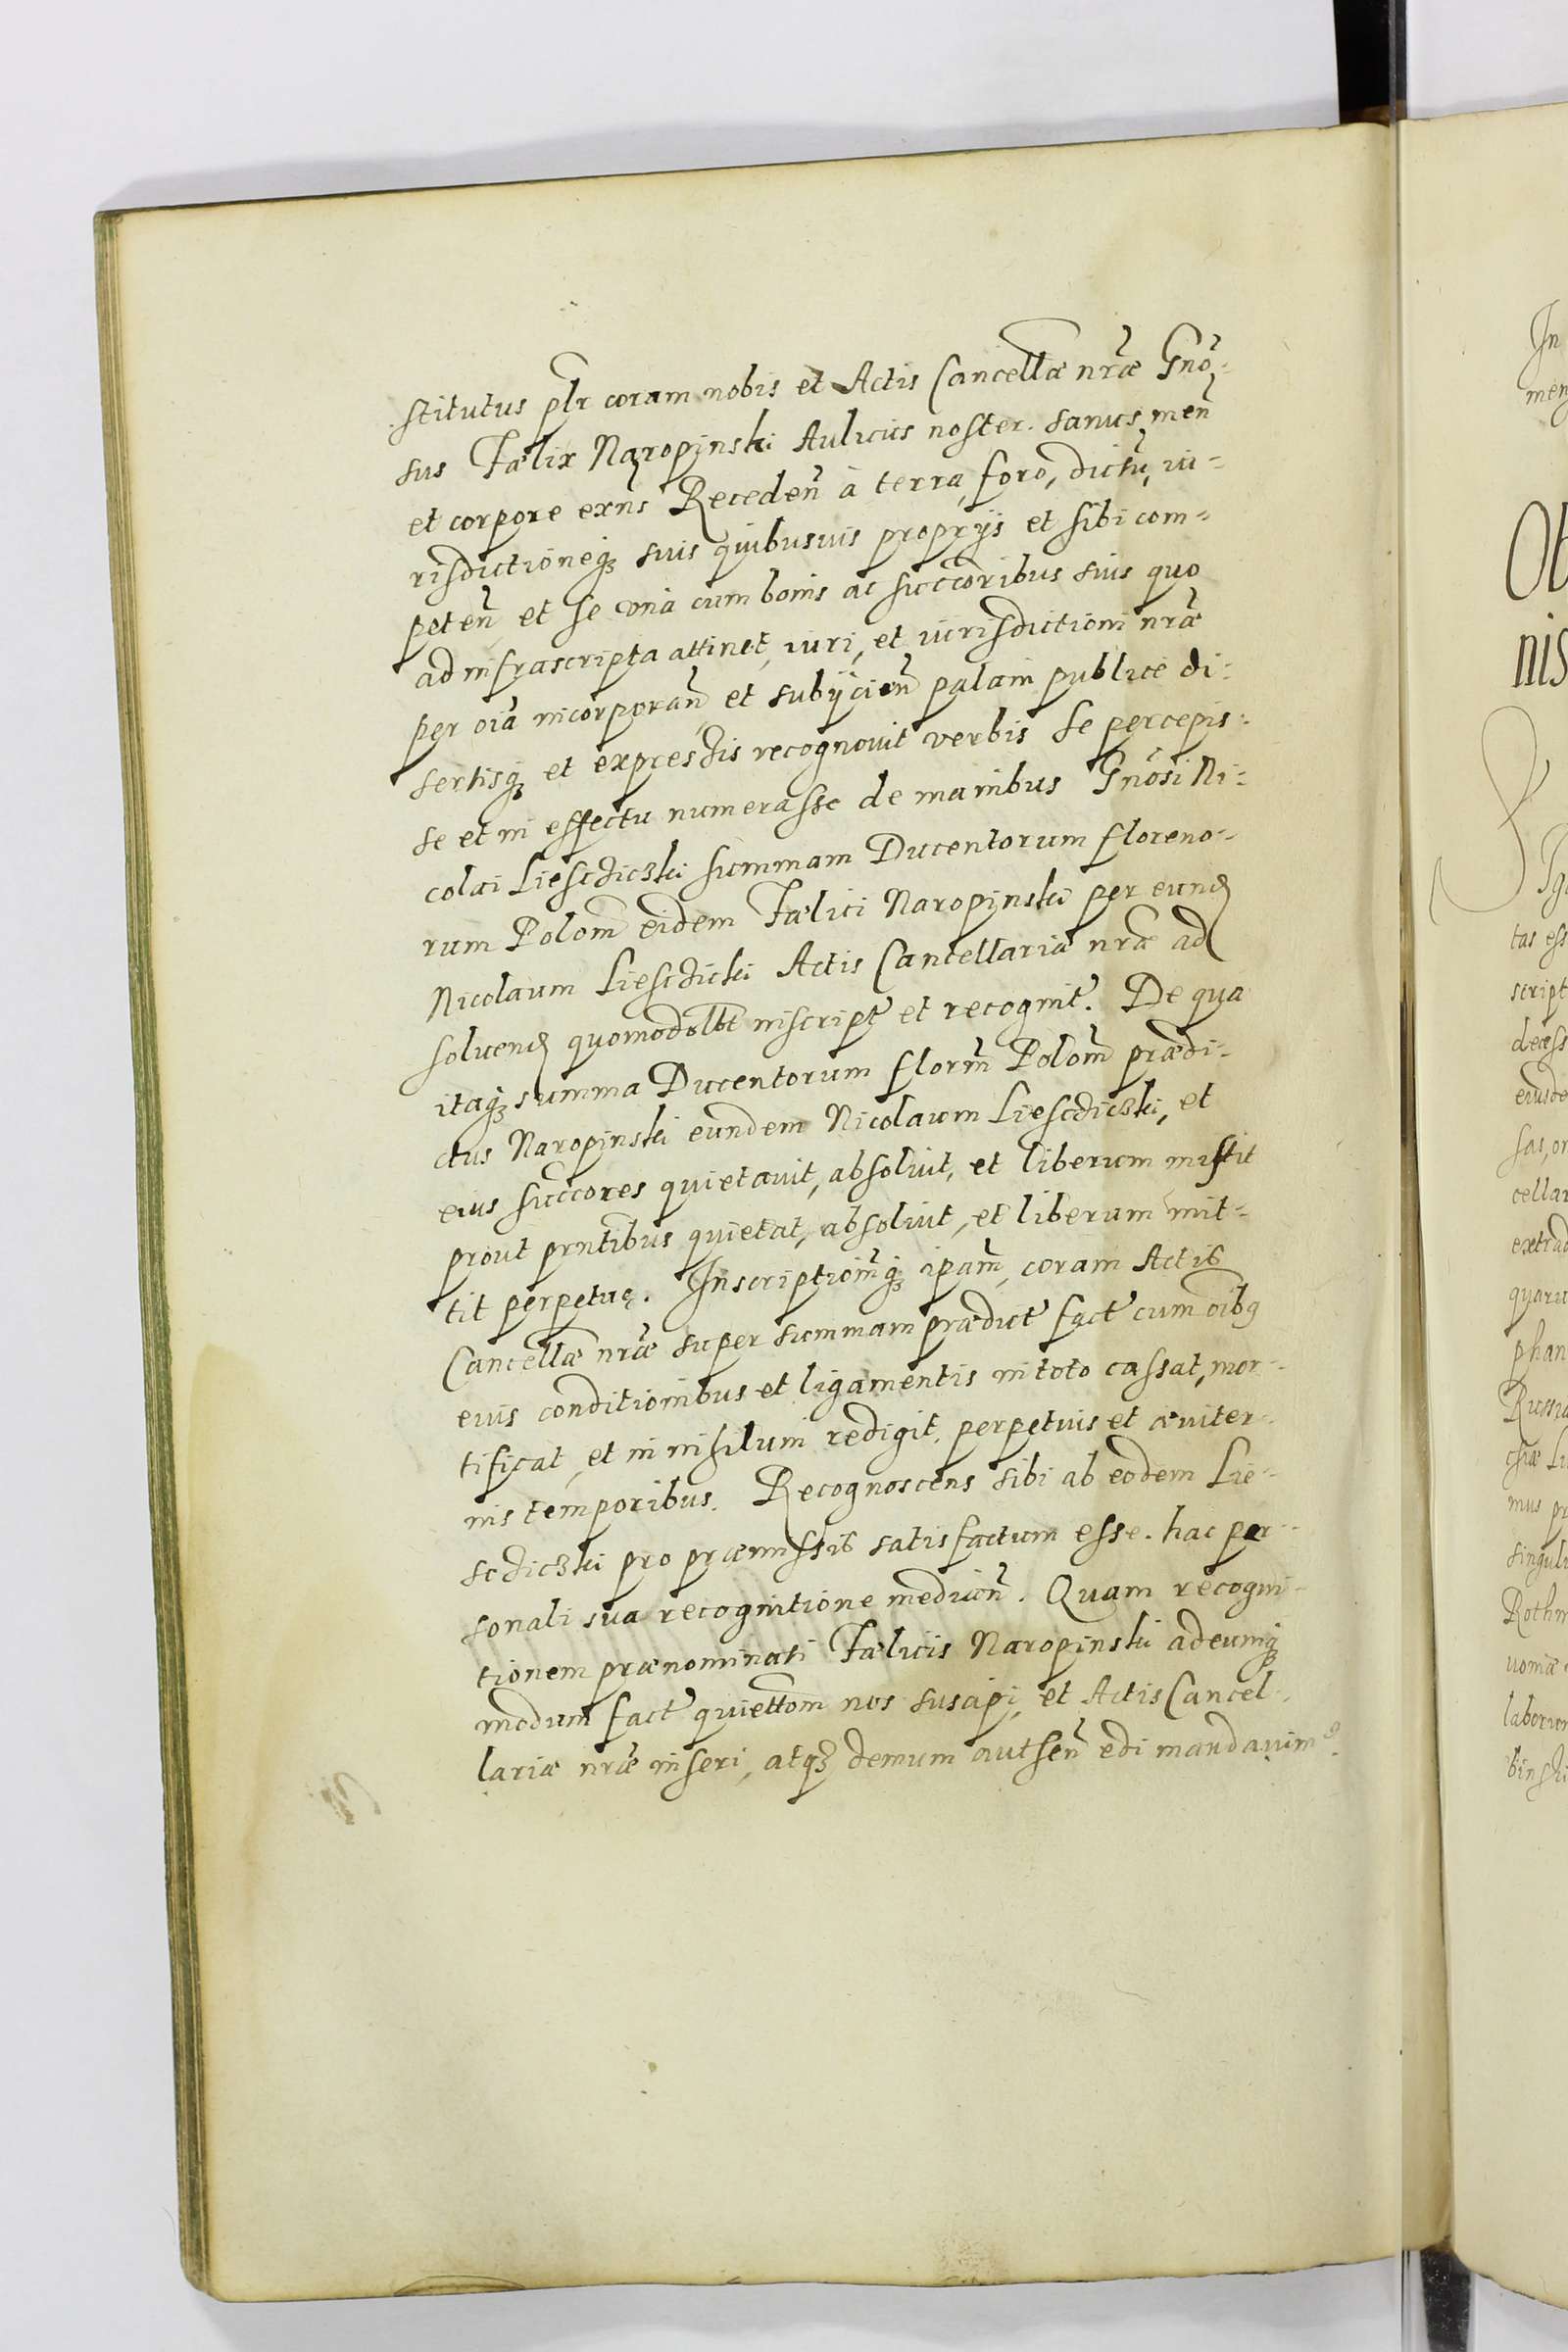 stitutus plr coram nobis et Actis Cancellæ nræ Gnō-
sus Fælix Naropinski Aulicus noster. sanus men̄
et corpore exn̄s Receden̄ à terra, foro, dictū, iu-
risdictioneq₃ suis quibusuis proprijs et sibi com-
peten̄ et se vnà cum bonis ac succōribus suis quo
ad infrascripta attinet, iuri, et iurisdictioni nræ
per oīa incorporan̄ et subÿcien̄ palam publicè di-
sertisq₃ et expressis recognouit verbis se percepis-
se et in effectu numerasse de manibus Gnōsi Ni-
colai Liesczicʒki summam Ducentorum floreno-
rum Polom̄ eidem Fælici Naropinski per eund
Nicolaum Liesczicki Actis Cancellariæ nræ ad
soluend quomodolbt inscript et recognit. De qua
itaq₃ summa Ducentorum florm̄ Polom̄ prædi-
ctus Naropinski eundem Nicolaum Liesczicʒki, et
eius succōres quietauit, absoluit, et liberum misit
prout prntibus quietat, absoluit, et liberum mit-
tit perpetuę. Inscriptiom̄q₃ ipam̄, coram Actis
Cancellæ nræ super summam prædict fact cum oībꝰ
euis conditionibus et ligamentis in toto cassat, mor-
tificat, et in nihilum redigit, perpetuis et æuiter-
nis temporibus. Recognoscens sibi ab eodem Lie-
sczicʒki pro præmissis satisfactum esse. hac per-
sonali sua recognitione median̄. Quam recogni-
tionem prænominati Fælicis Naropinski ad eumq₃
modum fact quiettom̄ nos suscipi, et Actis Cancel-
lariæ nræ inseri, atq₃ demum authen̄ edi mandauimꝰ.
In
men
Ob
nis
tas ess
script
decess
eiusde
sas, or
cellar
extrad
quaru
phan
Russia
chiæ Li
mus pr
singuli
Rothm
uomæ
laborum
binski